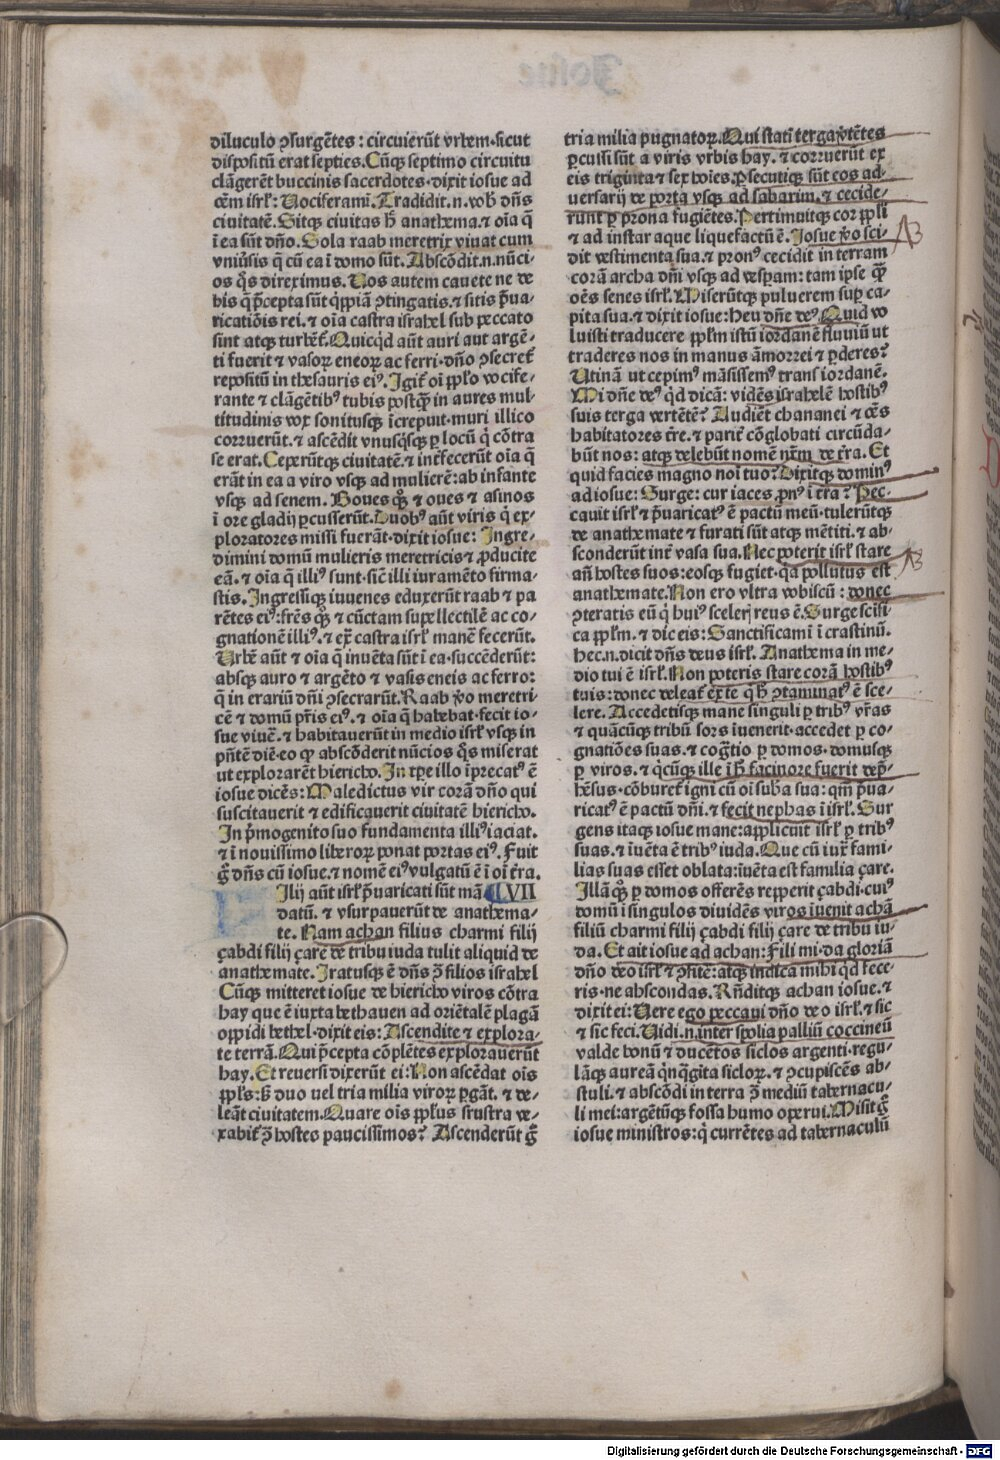 diluculo ꝯsurgētes : circuierūt vrbem·sicut
dispositū erat septies.Cūqꝫ septimo circuitu
clāgerēt buccinis sacerdotes·dixit iosue ad
oēm isrł: Uociferami.Tradidit.n.vob̄ dn̄s
ciuitatē.Sitqꝫ ciuitas h̄ anathema.⁊ oīa q̄
ī ea sūt dn̄o.Sola raab meretrix viuat cum
vniūsis q̄ cū ea ī domo sūt.Abscōdit.n.nūci⸗
os q̄s direximus.Uos autem cauete ne de
bis q̄ p̄cepta sūt q̄ppiā ꝯtingatis.⁊ sitis p̄ua⸗
ricatiōis rei.⁊ oīa castra israhel sub peccato
sint atqꝫ turbēt̉.Quicq̇d aūt auri aut argē⸗
ti fuerit ⁊ vasoꝝ eneoꝝ ac ferri·dn̄o ꝯsecret̉
repositū in thesauris eiꝰ.Igit̉ oī ppło vocife⸗
rante ⁊ clāgētibꝰ tubis postq̄ꝫ in aures mul⸗
titudinis vox sonitusqꝫ īcrepuit·muri illico
corruerūt.⁊ ascēdit vnusq̇sqꝫ ꝑ locū q̇ cōtra
se erat.Ceperūtqꝫ ciuitatē.⁊ int̉fecerūt oīa q̄
erāt in ea a viro vsqꝫ ad mulierē:ab infante
vsqꝫ ad senem. Boues qꝫ̄ ⁊ oues ⁊ asinos
ī ore gladij ꝑcusserūt.Duobꝰ aūt viris q̇ ex⸗
ploratores missi fuerāt·dixit iosue: Ingre⸗
dimini domū mulieris meretricis⁊ ꝓducite
eā.⁊ oīa q̄ illiꝰ sunt·sic̄ illi iuramēto firma⸗
stis.Ingressiqꝫ iuuenes eduxerūt raab ⁊ pa
rētes eiꝰ:fr̄es qꝫ̄ ⁊ cūctam supellectilē ac co⸗
gnationē illiꝰ.⁊ ext̄ castra isrł manē fecerūt.
Urbē aūt ⁊ oīa q̄ inuēta sūt ī ea·succēderūt:
absqꝫ auro ⁊ argēto ⁊ vasis eneis ac ferro:
q̄ in erariū dn̄i ꝯsecrarūt.Raab v̊o meretri⸗
cē ⁊ domū pr̄is eiꝰ.⁊ oīa q̄ habebat·fecit io⸗
sue viuē.⁊ habitauerūt in medio isrł vsqꝫ in
pn̄tē diē·eo ꝙ abscōderit nūcios q̄s miserat
ut explorarēt hiericho.In tꝑe illo īprecatꝰ ē
iosue dicēs: Maledictus vir corā dn̄o qui
suscitauerit ⁊ edificauerit ciuitatē hiericho.
In p̄mogenito suo fundamenta illiꝰ iaciat.
⁊ ī nouissimo liberoꝝ ponat portas eiꝰ.Fuit
g̊ dn̄s cū iosue.⁊ nomē eiꝰ vulgatū ē ī oī t̄ra.
Ilij aūt isrł p̄uaricati sūt mā LVII
datū. ⁊ vsurpauerūt de anathema⸗
te. Nam achan filius charmi filij
çabdi filij çare de tribu iuda tulit aliquid de
anathemate.Iratusqꝫ ē dn̄s ꝯ̄ filios israhel
Cūqꝫ mitteret iosue de hiericho viros cōtra
hay que ē iuxta bethauen ad oriētalē plagā
oppidi bethel·dixit eis: Ascendite ⁊ explora⸗
te terrā.Qui p̄cepta cōplētes explorauerūt
hay.Et reuersi dixerūt ei:Non ascēdat oīs
ppłs:s̄ duo uel tria milia viroꝝ ꝑgāt.⁊ de⸗
leāt ciuitatem.Quare oīs ppłus frustra ve⸗
xabit̉ ꝯ̄ hostes paucissimos? Ascenderūt g̊
tria milia pugnatoꝝ.Qui stati terga v̄tētes
ꝑcussi sūt a viris vrbis hay.⁊ corruerūt ex
eis triginta ⁊ sex hoīes.Ꝑsecutiqꝫ sūt eos ad⸗
uersarij de porta vsqꝫ ad sabarim.⁊ cecide⸗
runt ꝑ prona fugiētes.Pertimuitqꝫ cor ppłi
⁊ ad instar aque liquefactū ē.Iosue v̊o sci⸗
dit vestimenta sua.⁊ pronꝰ cecidit in terram
corā archa dn̄i vsqꝫ ad vesꝑam: tam ipse q̄ꝫ
oēs senes isrł.Miserūtqꝫ puluerem suꝑ ca⸗
pita sua.⁊ dixit iosue:heu dn̄e deꝰ.Quid vo
luisti traducere ppłm istū iordanē fluuiū ut
traderes nos in manus āmorrei ⁊ ꝑderes?
Utinā ut cepimꝰ māsissemꝰ trans iordanē.
Mi dn̄e deꝰ qd dicā: vidēs israhelē hostibꝰ
suis terga vertētē? Audiēt chananei ⁊ oēs
habitatores t̄re.⁊ parit̉ cōglobati circūda⸗
būt nos: atqꝫ delebūt nomē nr̄m de t̄ra. Et
quid facies magno noī tuo?Dixitqꝫ dominꝰ
ad iosue: Surge: cur iaces pronꝰ ī t̄ra? Pec⸗
cauit isrł ⁊ p̄uaricatꝰ ē pactū meū·tulerūtqꝫ
de anathemate ⁊ furati sūt atqꝫ mētiti.⁊ ab⸗
sconderūt int̉ vasa sua.Nec poterit isrł stare
an̄ hostes suos:eosqꝫ fugiet·qa pollutus est
anathemate.Non ero vltra vobiscū : donec
ꝯteratis eū q̇ huiꝰ sceleris reus ē.Surge sc̄ifi
ca ppłm.⁊ dic eis: Sanctificami ī crastinū.
hec.n.dicit dn̄s deus isrł. Anathema in me⸗
dio tui ē isrł.Non poteris stare corā hostibꝰ
tuis:donec deleat̉ ex te q̇ h̄ ꝯtaminatꝰ ē sce⸗
lere. Accedetisqꝫ mane singuli ꝑ tribꝰ vr̄as
⁊ quācūqꝫ tribū sors īuenerit·accedet ꝑ co⸗
gnatiōes suas.⁊ cog̅tio ꝑ domos·domusqꝫ
ꝑ viros.⁊ q̇cūqꝫ ille ī h̄ facinore fuerit dep̄⸗
hēsus·cōburet̉ igni cū oī suba sua: qm̄ p̄ua⸗
ricatꝰ ē pactū dn̄i.⁊ fecit nephas ī isrł. Sur
gens itaqꝫ iosue mane:applicuit isrł ꝑ tribꝰ
suas.⁊ īuēta ē tribꝰ iuda.Que cū iux̄ fami⸗
lias suas esset oblata:īuēta est familia çare.
Illā qꝫ̄ ꝑ domos offerēs repperit çabdi·cuiꝰ
domū ī singulos diuidēs viros īuenit achā
filiū charmi filij çabdi filij çare de tribu iu⸗
da. Et ait iosue ad achan: Fili mi·da gloriā
dn̄o deo isrł ⁊ ꝯfitē:atqꝫ indica mihi qd fece⸗
ris·ne abscondas.Rn̄ditqꝫ achan iosue.⁊
dixit ei: Uere ego peccaui dn̄o deo isrł.⁊ sic
⁊ sic feci.Uidi.n.inter spolia palliū coccineū
valde bonū ⁊ ducētos siclos argenti·regu⸗
lāqꝫ aureā qnq̄gīta sicloꝝ.⁊ ꝯcupiscēs ab⸗
stuli.⁊ abscōdi in terra ꝯ̄ mediū tabernacu⸗
li mei:argētūqꝫ fossa humo operui.Misit g̊
iosue ministros:q̇ currētes ad tabernaculū
Digitalisierung gefördert durch die Deutsche Forschungsgemeinschaft - DFG